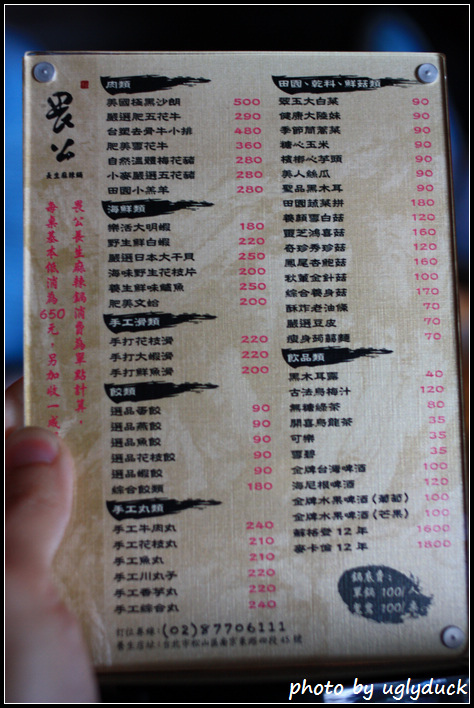 農公
長生麻辣鍋
農公長生麻辣鍋消費為單點計算，
每桌基本低消為650元，另加收一成
肉類
美國極黑沙朗 500
嚴選肥五花牛 290
台塑去骨牛小排 480
肥美雪花牛 360
自然溫體梅花豬 280
小麥嚴選五花豬 280
田園小羔羊 280
海鮮類
樂活大明蝦 180
野生鮮白蝦 220
嚴選日本大干貝 250
海味野生花枝片 200
養生鮮味鱸魚 250
肥美文蛤 200
手工滑類
手打花枝滑 220
手打大蝦滑 220
手打鮮魚滑 200
餃類
選品蛋餃 90
選品燕餃 90
選品魚餃 90
選品花枝餃 90
選品蝦餃 90
綜合餃類 180
手工丸類
手工牛肉丸 240
手工花枝丸 210
手工魚丸 210
手工川丸子 220
手工香芋丸 220
手工綜合丸 240
田園、乾料、鮮菇類
翠玉大白菜 90
健康大陸妹 90
季節茼蒿菜 90
糖心玉米 90
檳榔心芋頭 90
美人絲瓜 90
聖品黑木耳 90
田園蔬菜拼 180
養顏雪白菇 120
靈芝鴻喜菇 160
奇珍秀珍菇 120
鳳尾杏鮑菇 160
秋葉金針菇 100
綜合養身菇 170
酥炸老油條 70
嚴選豆皮 70
瘦身蒟蒻麵 70
飲品類
黑木耳露 40
古法烏梅汁 120
無糖綠茶 80
開喜烏龍茶 35
可樂 35
雪碧 35
金牌台灣啤酒 100
海尼根啤酒 120
金牌水果啤酒（葡萄） 100
金牌水果啤酒（芒果） 100
蘇格登 12 年 1600
麥卡倫 12 年 1800
鍋底費：
單鍋 100/人
鴛鴦 100/桌
訂位專線：(02)87706111
養生店址：台北市松山區南京東路四段 45 號
photo by uglyduck